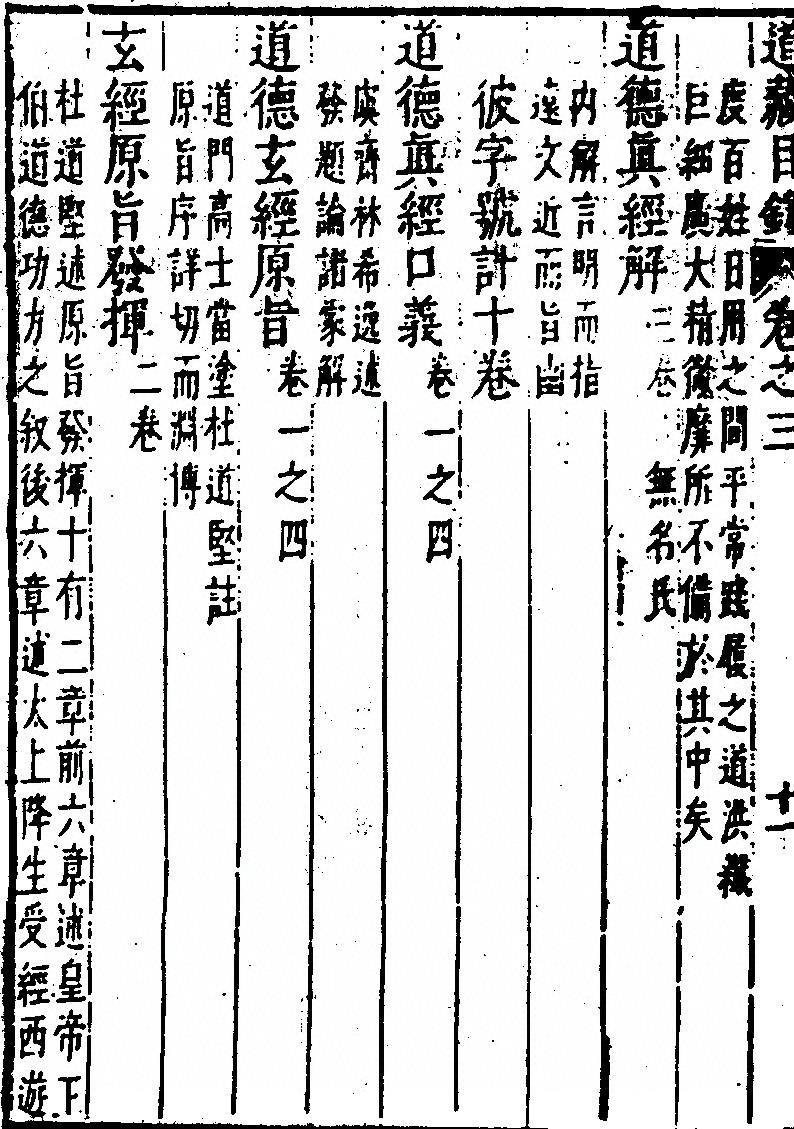 道藏目錄 卷之三 十一
度百姓日用之間平常踐履之道洪纖
巨細廣大精微靡所不備於其中矣
道德眞經解 三卷 無名氏
內解言明而指
遠文近而旨幽
彼字號計十卷
道德眞經口義 卷一之四
鬳齋林希逸述
發題論諸家解
道德玄經原旨 卷一之四
道門高士當塗杜道堅註
原旨序詳切而淵博
玄經原旨發揮 二卷
杜道堅述原旨發揮十有二章前六章述皇帝下
伯道德功力之叙後六章述太上降生受經西遊